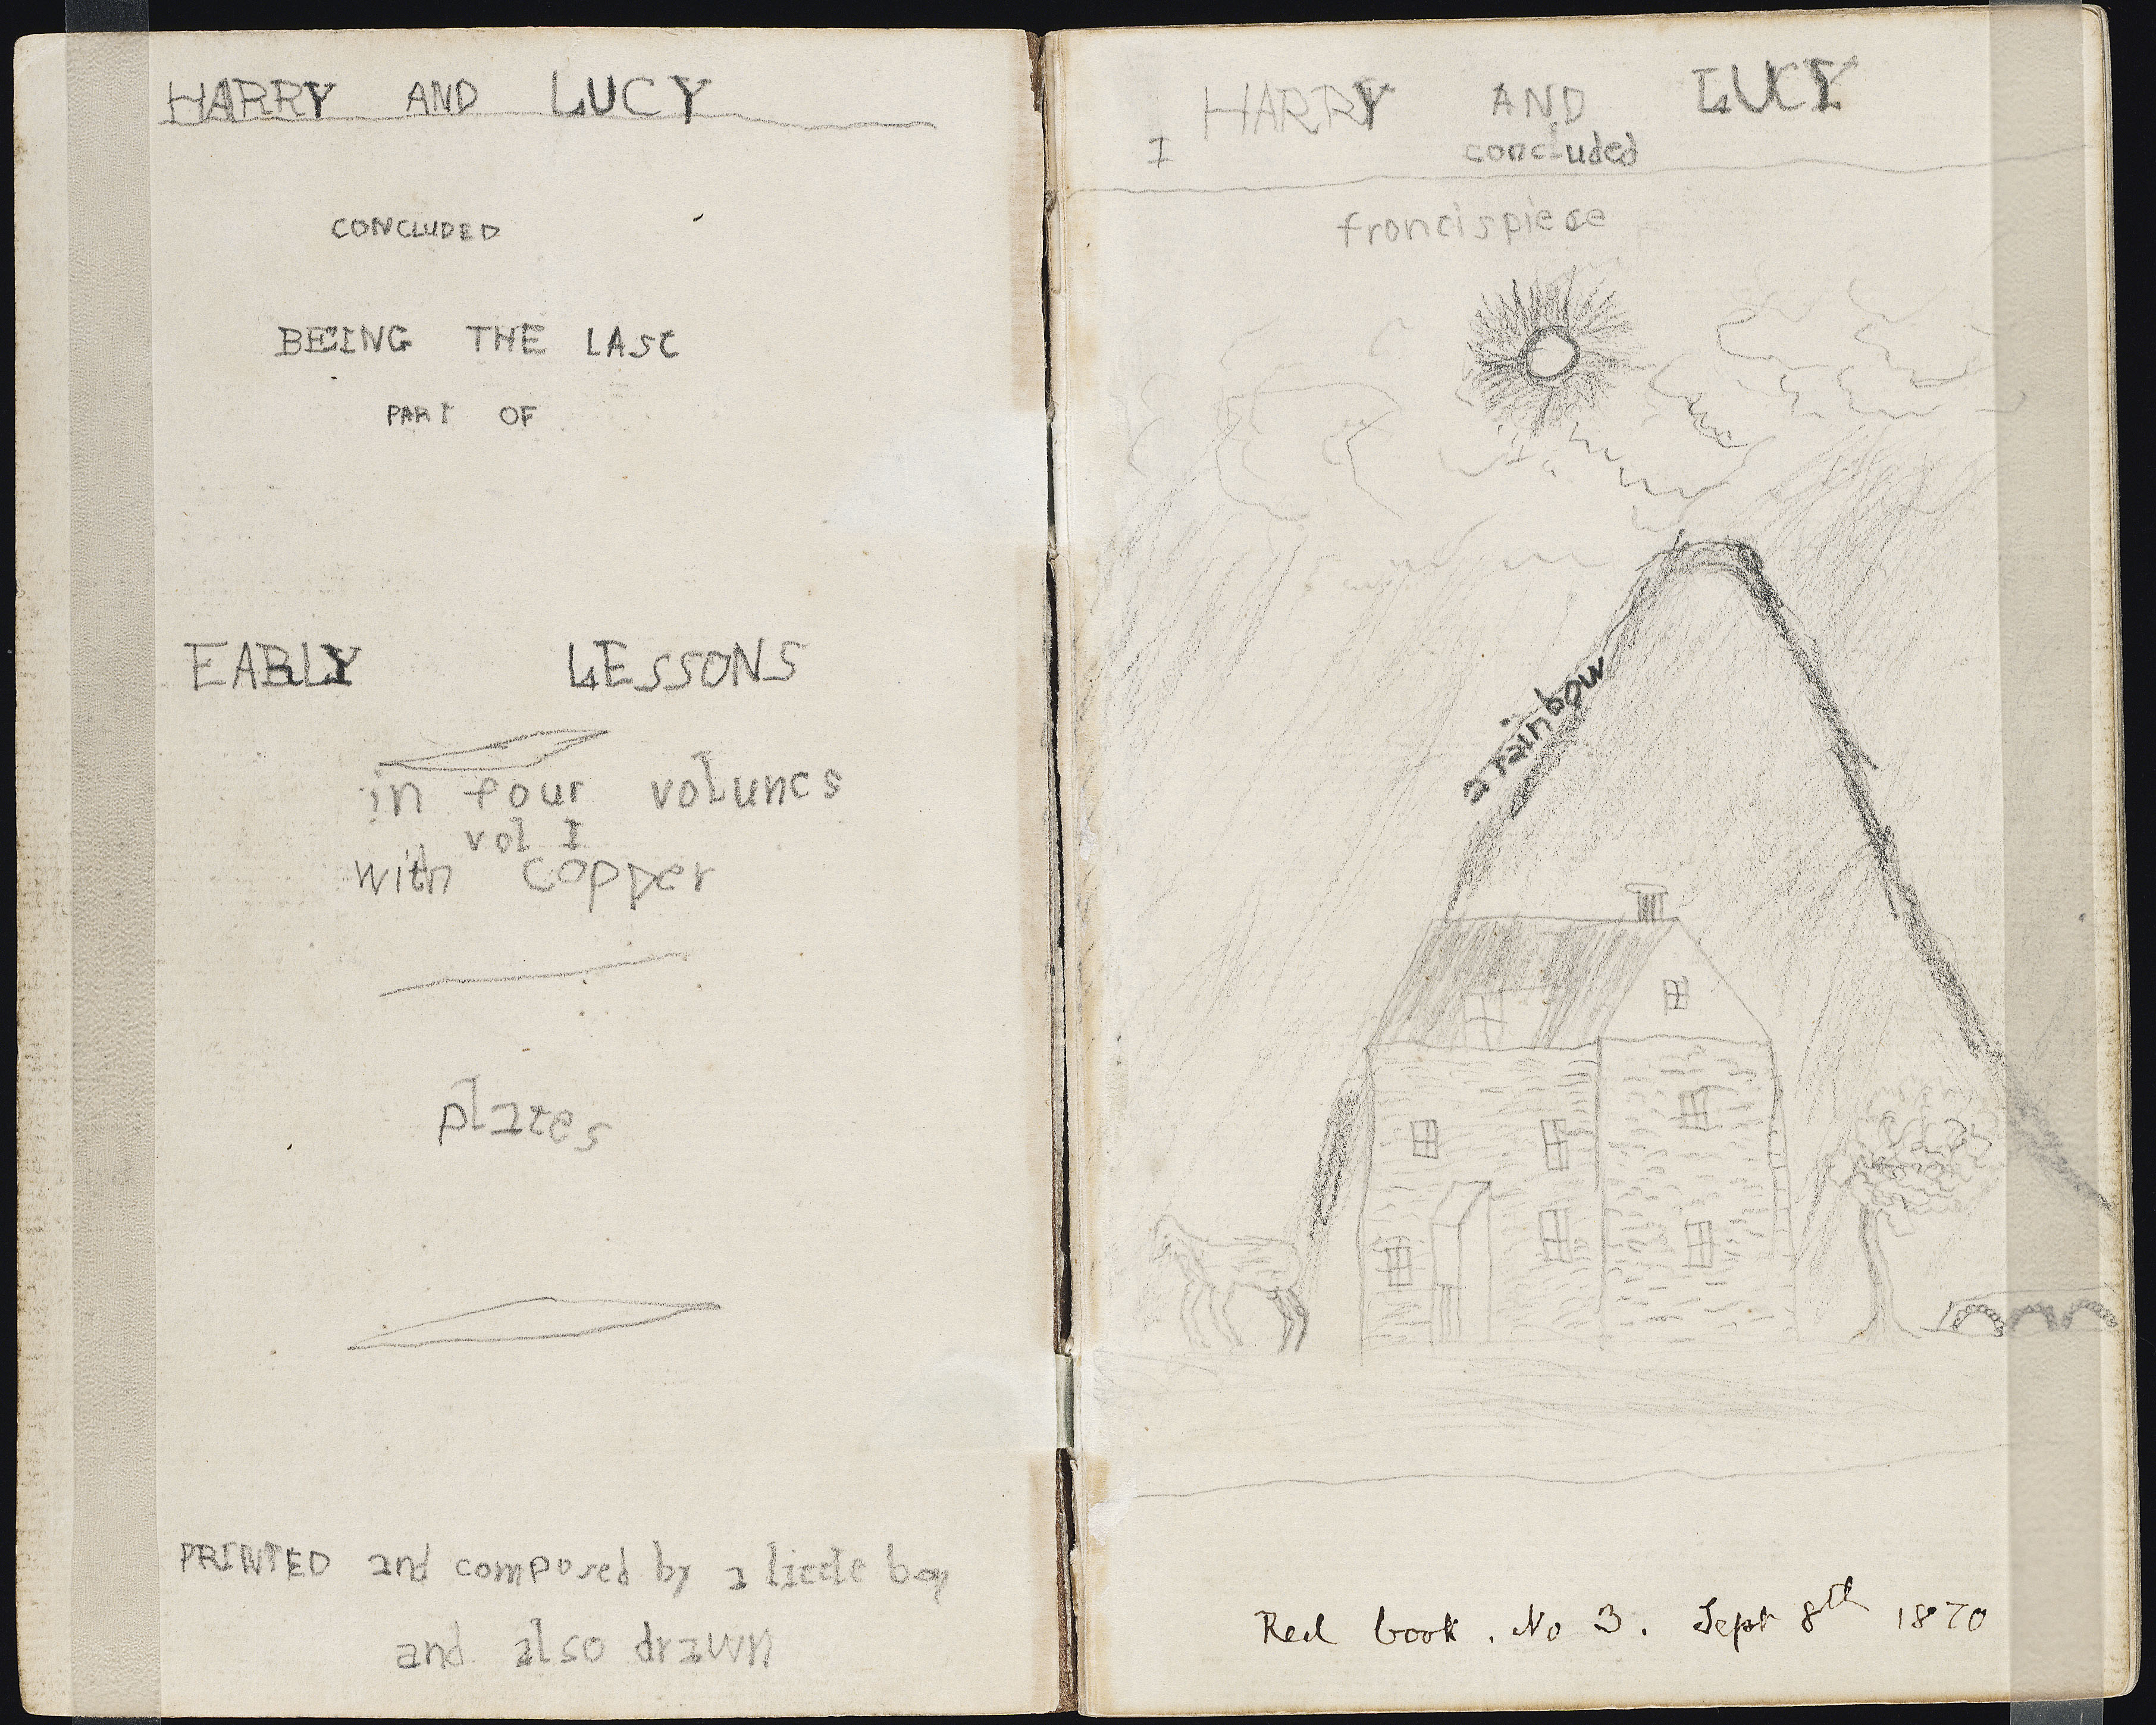 HARRY AND LUCY
CONCLUDED
BEING THE LAST
PART OF
EARLY LESSONS
in four volunes
vol I
with copper
plates
PRINTED and composed by a little boy
and also drawn
HARRY AND LUCY
I concluded
frontispiece
a rainbow
Red book. No 3. Sept 8th 1870